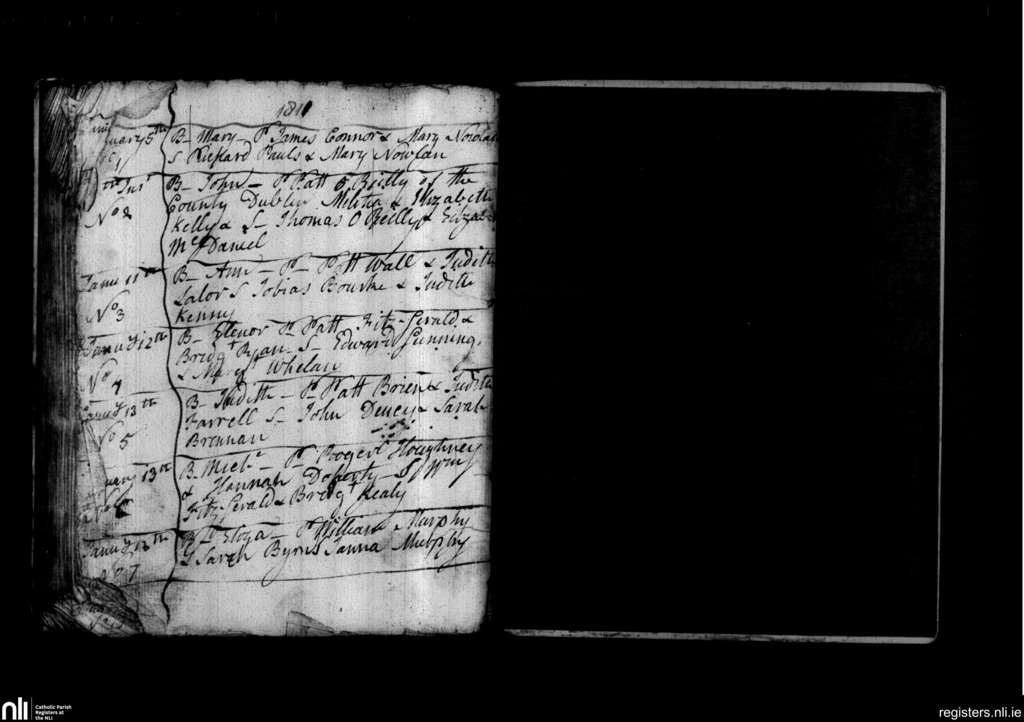 1811
uary 5th B- Mary - Pt James Connor & Mary Nowlan
No 1 S Richard Pauls & Mary Nowlan
th Inst B- John - Pt Patt O, Reilly of the
County Dublin Militia & Elizabeth
No 2 Kelly & S- Thomas O Reilly & Elizab
Mc Daniel
Janu 11th B- Ann - Pt Patt Wall & Judith
Lalor S Tobias Bourke & Judith
No 3 Kenny
Janu y 12th B- Elenor Pt Patt Fitz-Gerald &
Bridgt Ryan - S- Edward Gunning,
No 4 & Margt Whelan
Janu y 13th B- Judith - Pt Patt Brien & Judith
Farrell S- John Deucy & Sarah
No 5 Brennan
uary 13th B- Michl - Pt Roger Houghney
& Hannah Doherty - S
No 6 Fitz-Gerald & Bridgt Kealy
Janu y 13th B- Eloza - Pt William Murphy
No 7 & Sarah Byrns Murphy
nli
Catholic Parish
Registers at
the NLI
registers.nli.ie